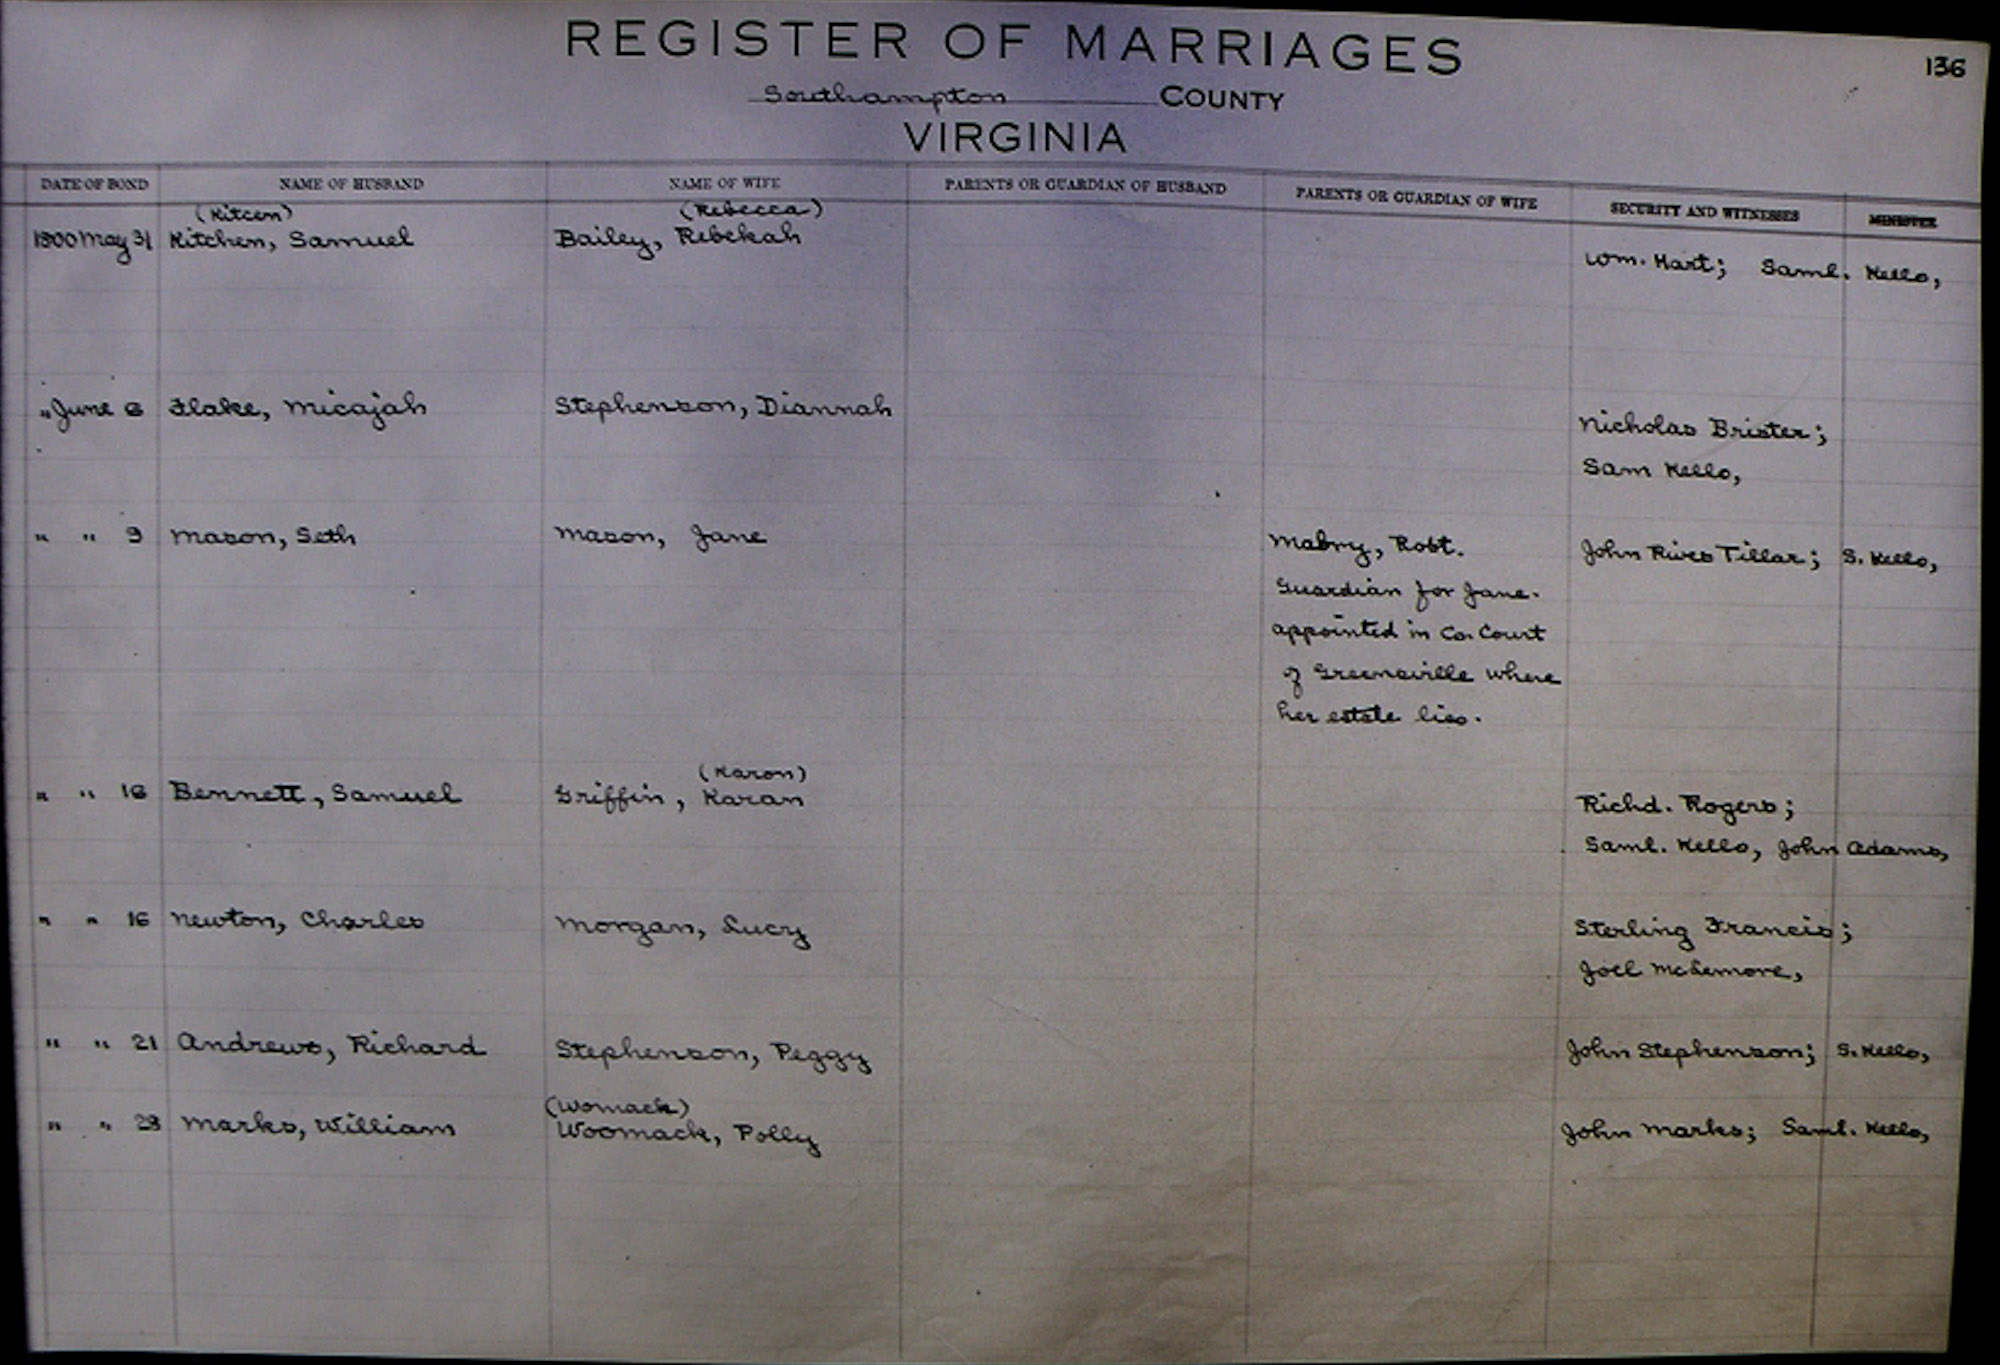 REGISTER OF MARRIAGES
136
Southampton COUNTY
VIRGINIA
DATE OF BOND NAME OF HUSBAND NAME OF WIFE PARENTS OR GUARDIAN OF HUSBAND PARENTS OR GUARDIAN OF WIFE SECURITY AND WITNESSES MINISTER
(Kitcen) (Rebecca)
1800 May 31 Kitchen, Samuel Bailey, Rebekah Wm. Hart; Saml. Kello,
" June 6 Flake, Micajah Stephenson, Diannah Nicholas Brister;
Sam Kello,
" " 9 Mason, Seth Mason, Jane Mabry, Robt. John Rives Tillar; S. Kello,
Guardian for Jane.
appointed in Co. Court
of Greensville where
her estate lies.
(Karon)
" " 16 Bennett, Samuel Griffin, Karan Richd. Rogers;
Saml. Kello, John Adams,
" " 16 Newton, Charles Morgan, Lucy Sterling Francis;
Joel McLemore,
" " 21 Andrews, Richard Stephenson, Peggy John Stephenson; S. Kello,
(Womack)
" " 28 Marks, William Woomack, Polly John Marks; Saml. Kello,